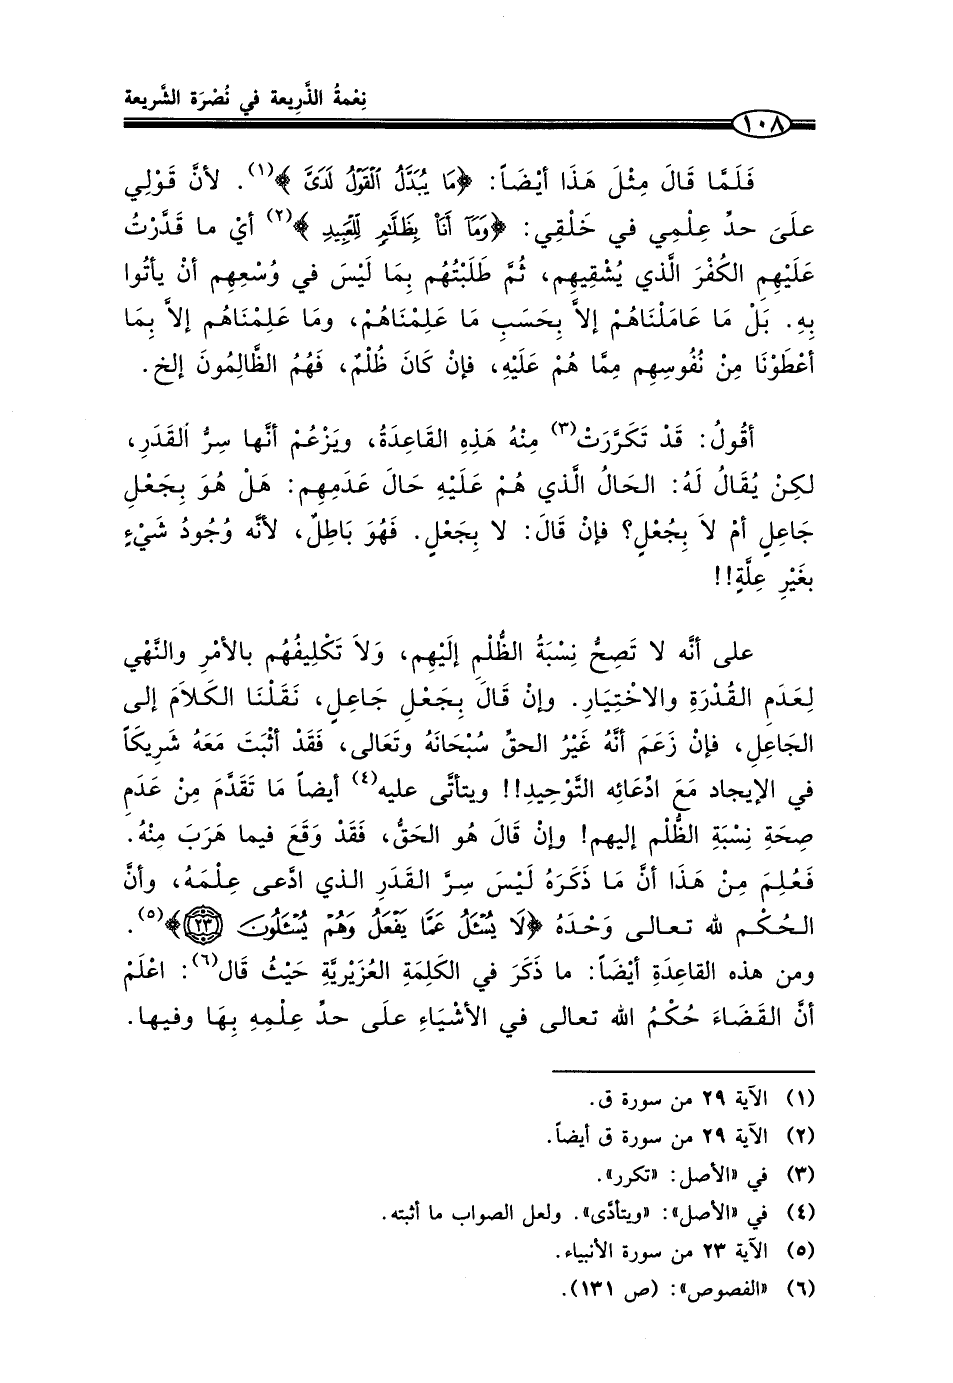 نِعْمةُ الذَّرِيعة في نُصْرَة الشَّريعة
١٠٨
فَلَمَّا قَالَ مِثْلَ هَذَا أيْضَاً: ﴿مَا يُبَدَّلُ الْقَوْلُ لَدَىَّ﴾(١). لأنَّ قَوْلِي
علَىَ حدِّ عِلْمِي في خَلْقِي: ﴿وَمَآ أَنَاْ بِظَلَّٰمٍ لِّلْعَبِيدِ﴾(٢) أيْ ما قَدَّرْتُ
عَلَيْهِم الكُفْرَ الَّذي يُشْقِيهِم، ثُمَّ طَلَبْتُهُم بِمَا لَيْسَ في وُسْعِهِم أنْ يأتُوا
بِهِ. بَلْ مَا عَامَلْنَاهُمْ إلاَّ بِحَسَبِ مَا عَلِمْنَاهُمْ، ومَا عَلِمْنَاهُم إلاَّ بِمَا
أعْطَوْنَا مِنْ نُفُوسِهِم مِمَّا هُمْ عَلَيْهِ، فإنْ كَانَ ظُلْمٌ، فَهُمُ الظَّالِمُونَ إلخ.
أقُولُ: قَدْ تَكَرَّرَتْ(٣) مِنْهُ هَذِهِ القَاعِدَةُ، ويَزْعُمْ أنَّها سِرُّ القَدَرِ،
لكِنْ يُقَالُ لَهُ: الحَالُ الَّذي هُم عَلَيْهِ حَالَ عَدَمِهِم: هَلْ هُوَ بِجَعْلِ
جَاعِلٍ أمْ لاَ بِجُعْلٍ؟ فإنْ قَالَ: لا بِجَعْلٍ. فَهُوَ بَاطِلٌ، لأنَّه وُجُودُ شَيْءٍ
بغَيْرِ عِلَّةٍ!!
على أنَّه لا تَصِحُّ نِسْبَةُ الظُّلْمِ إلَيْهِم، وَلاَ تَكْلِيفُهُم بالأمْرِ والنَّهْي
لِعَدَمِ القُدْرَةِ والاخْتِيَارِ. وإنْ قَالَ بِجَعْلِ جَاعِلٍ، نَقَلْنَا الكَلاَمَ إلى
الجَاعِلِ، فإنْ زَعَمَ أنَّهُ غَيْرُ الحقِّ سُبْحَانَهُ وتَعَالى، فَقَدْ أثْبَتَ مَعَهُ شَرِيكَاً
في الإيجاد مَعَ ادِّعَائِه التَّوْحِيدِ!! ويتأتَّى عليه(٤) أيضاً مَا تَقَدَّمَ مِنْ عَدَمِ
صِحَةِ نِسْبَةِ الظُّلْم إليهم! وإنْ قَالَ هُو الحَقُّ، فَقَدْ وَقَعَ فيما هَرَبَ مِنْهُ.
فَعُلِمَ مِنْ هَذَا أنَّ مَا ذَكَرَهُ لَيْسَ سِرَّ القَدَرِ الذي ادَّعى عِلْمَهُ، وأنَّ
الحُكْم لله تعالى وَحْدَهُ ﴿لَا يُسْئَلُ عَمَّا يَفْعَلُ وَهُمْ يُسْئَلُونَ ٢٣﴾(٥).
ومن هذه القاعَدَةِ أيْضَاً: ما ذَكَرَ في الكَلِمَةِ العُزَيْرِيَّةِ حَيْثُ قَال(٦): اعْلَمْ
أنَّ القَضَاءَ حُكْمُ الله تعالى في الأشْيَاءِ علَى حدِّ عِلْمِهِ بِهَا وفيها.
(١) الآية ٢٩ من سورة ق.
(٢) الآية ٢٩ من سورة ق أيضاً.
(٣) في «الأصل: «تكرر».
(٤) في «الأصل»: «ويتأدَّى». ولعل الصواب ما أثبته.
(٥) الآية ٢٣ من سورة الأنبياء.
(٦) «الفصوص»: (ص ١٣١).